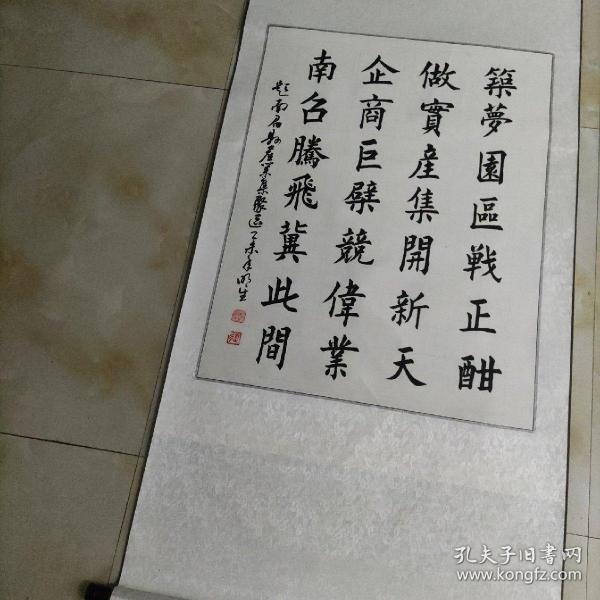 築夢園區戰正酣
做實產集開新天
企商巨擘競偉業
南召騰飛冀此間
題南召縣產業集聚區乙未年明生
孔夫子旧书网
www.kongfz.com